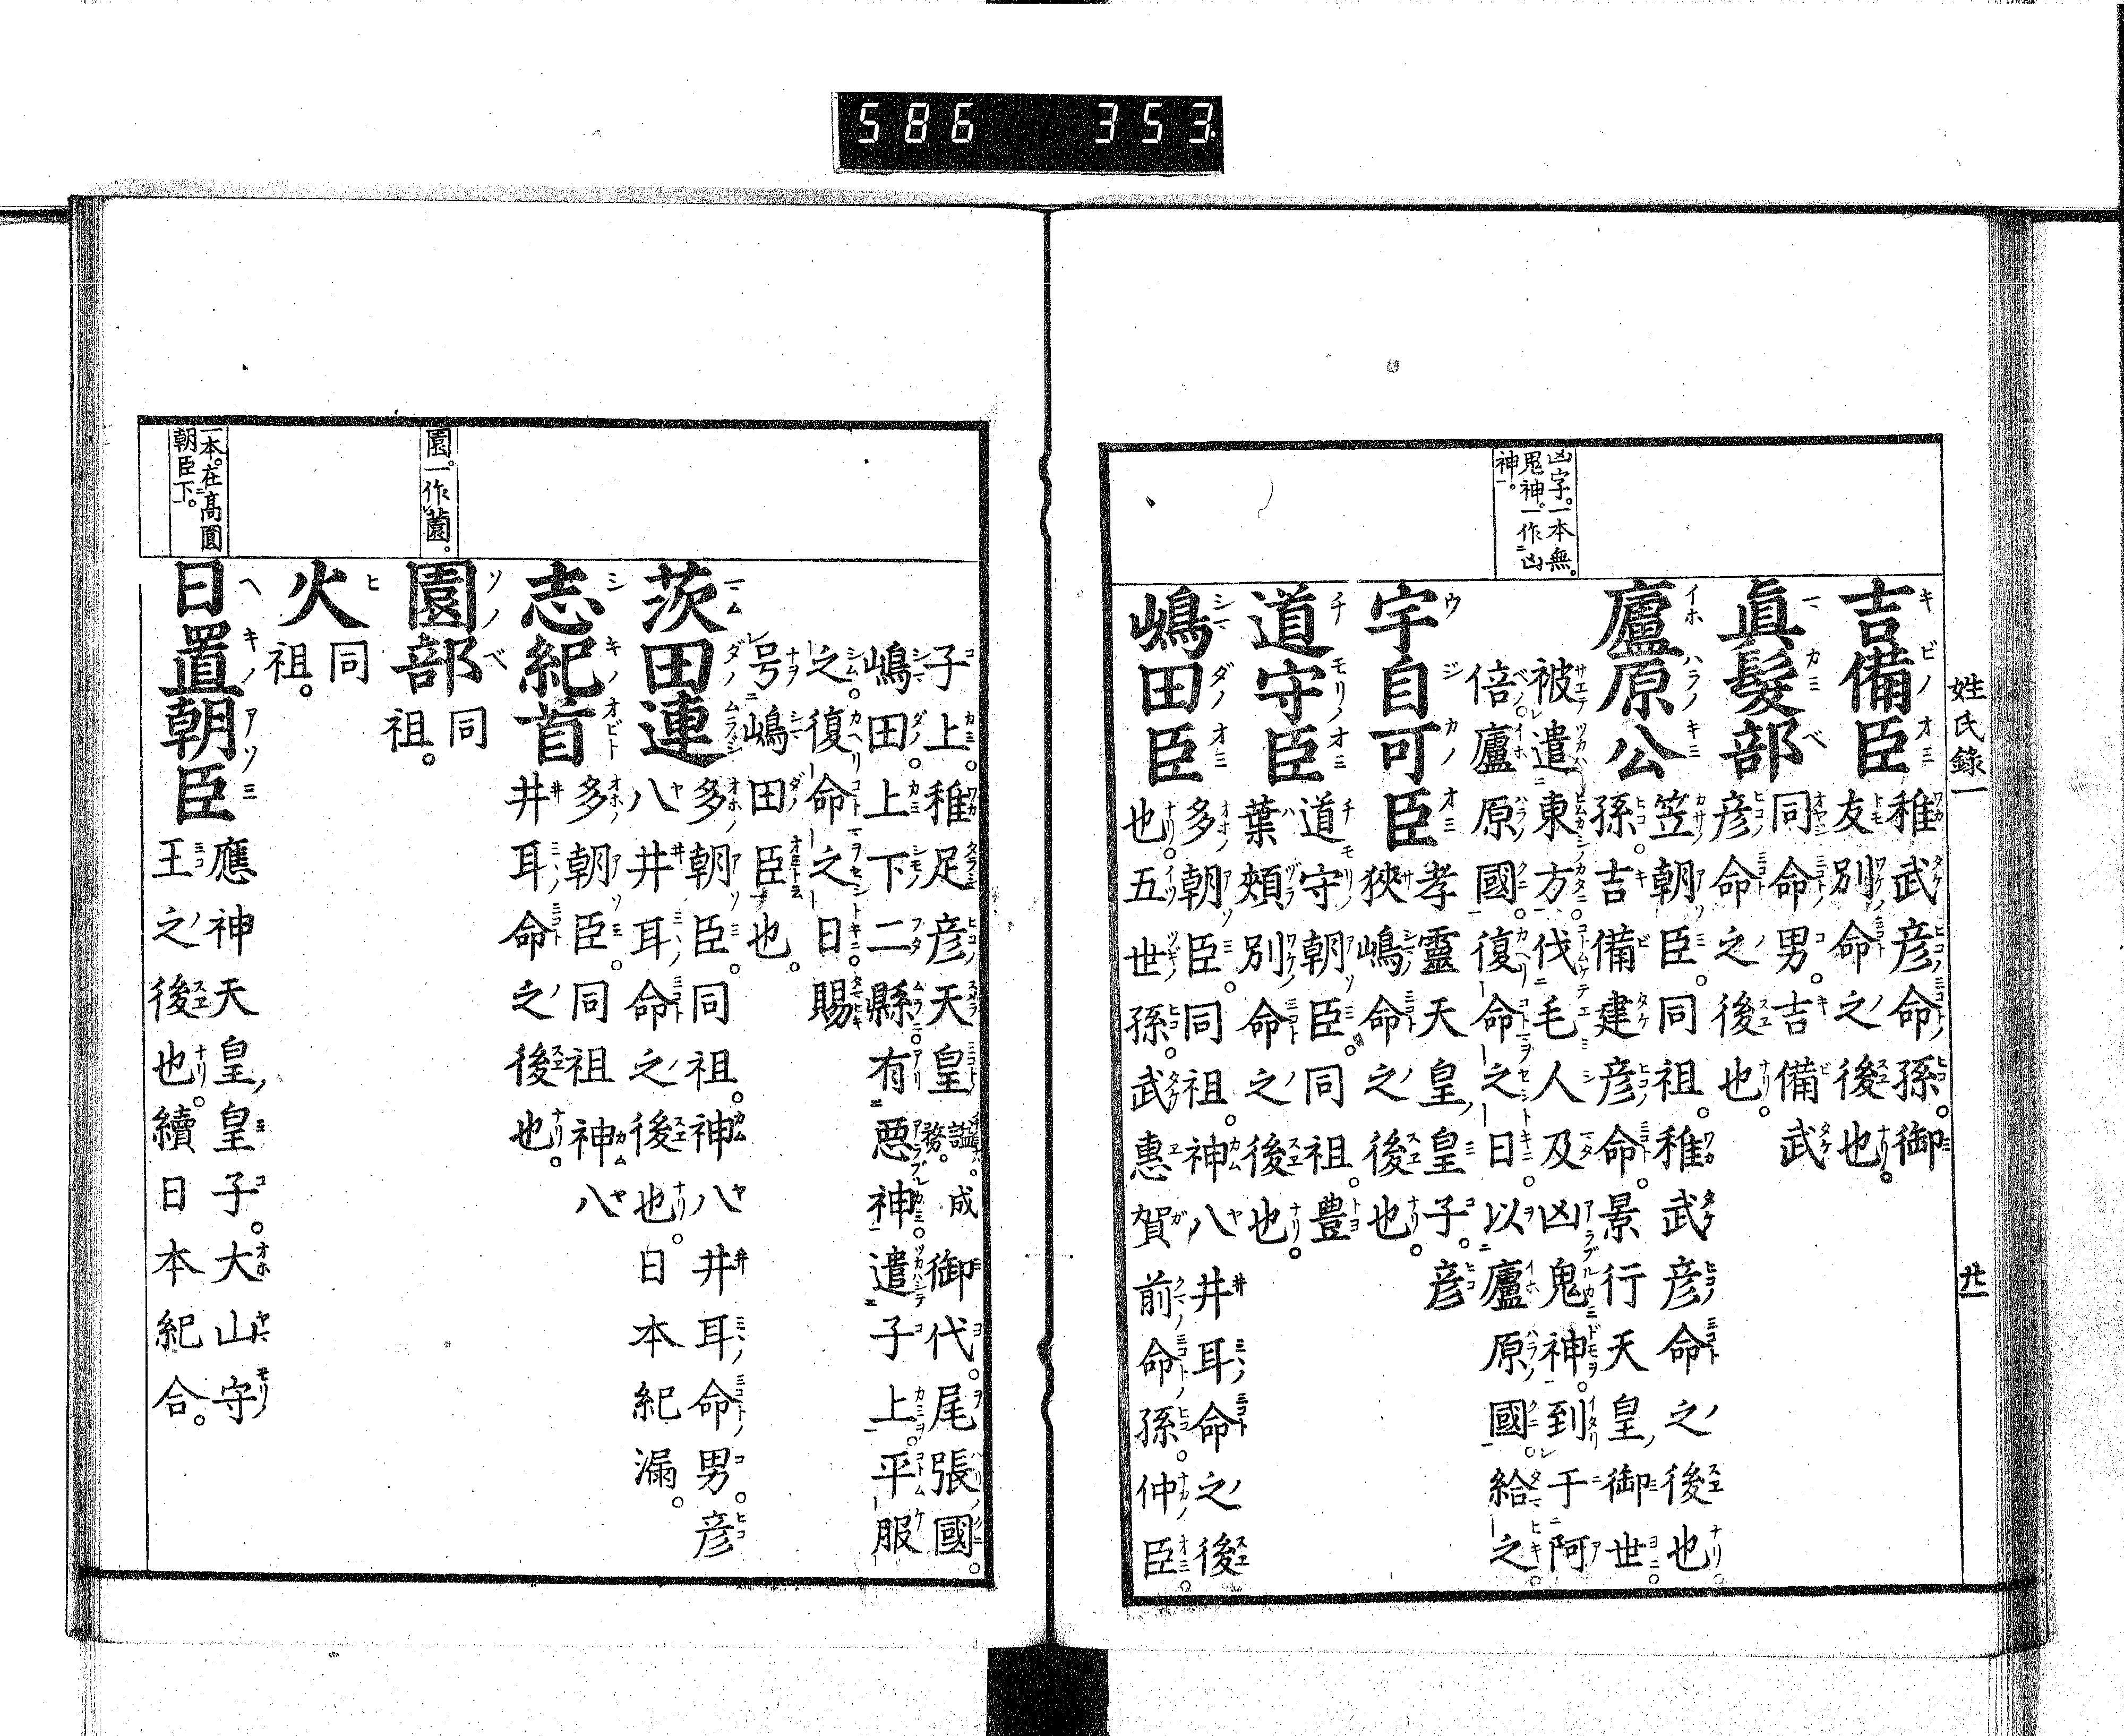 586 353
姓氏錄一
廿一
凶字。一本無。
鬼神。一作凶
神。
吉備臣
稚武彦命孫。御
友別命之後也。
眞髮部
同命男。吉備武
彦命之後也。
廬原公
笠朝臣。同祖。稚武彦命之後也。
孫。吉備建彦命。景行天皇御世。
被遣東方。伐毛人及凶鬼神。到于阿
倍廬原國。復命之日。以廬原國給之。
宇自可臣
孝靈天皇皇子。彦
狹嶋命之後也。
道守臣
道守朝臣。同祖。豊
葉頰別命之後也。
嶋田臣
多朝臣。同祖。神八井耳命之後
也。五世孫。武惠賀前命孫。仲臣。
子上。稚足彦天皇謚成務。御代。尾張國。
嶋田。上下二縣有悪神。遣子上。平服
之。復命之日。賜
号嶋田臣也。
茨田連
多朝臣。同祖。神八井耳命男。彦
八井耳命之後也。日本紀漏。
志紀首
多朝臣。同祖神八
井耳命之後也。
園。一作薗。
園部
同
祖。
火
同
祖。
一本。在高圓
朝臣下。
日置朝臣
應神天皇皇子。大山守
王之後也。續日本紀合。